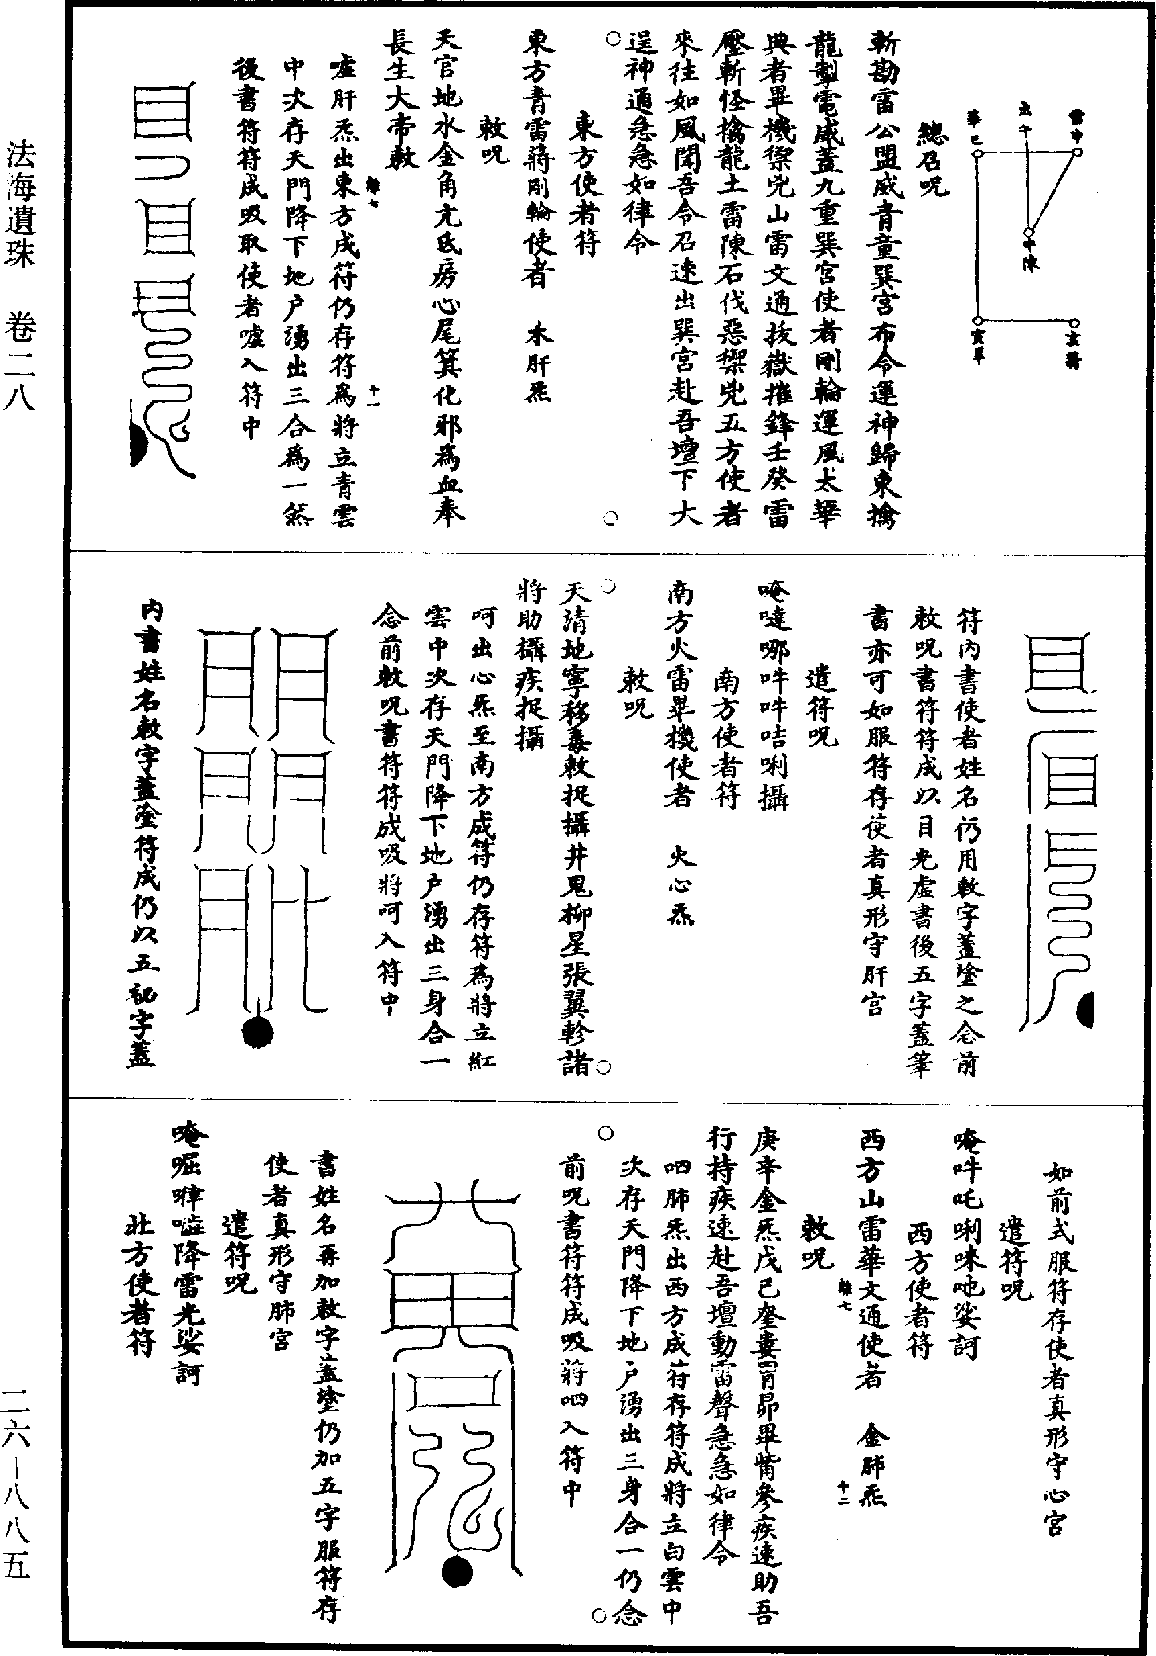 總召呪
斬勘雷公盟威青童巽宮布令運神歸東擒
龍掣電威蓋九重巽宮使者剛輪運風太華
典者畢機禦兇山雷文通抜嶽摧鋒壬癸雷
壓斬怪擒龍土雷陳石伐惡禦兇五方使者
來往如風聞吾令召速出巽宮赴吾壇下大
逞神通急急如律令
東方使者符
東方青雷蔣剛輪使者 木肝炁
敕呪
天官地水金角亢氐房心尾箕化邪為血奉
長生大帝敕
噓肝炁出東方成符仍存符為將立青雲
中次存天門降下地户湧出三合為一然
後書符符成吸取使者噓入符中
符內書使者姓名仍用敕字蓋塗之念前
敕呪書符符成以目光虛書後五字蓋筆
書亦可如服符存使者真形守肝宮
遣符呪
唵噠哪吽吽咭唎攝
南方使者符
南方火雷畢機使者 火心炁
敕呪
天清地寧移毒敕捉攝井鬼柳星張翼軫諸
將助攝疾捉攝
呵出心炁至南方成符仍存符為將立紅
雲中次存天門降下地户湧出三身合一
念前敕呪書符符成吸將呵入符中
內書姓名敕字蓋塗符成仍以五祕字蓋
如前式服符存使者真形守心宮
遣符呪
唵吽吒唎咪吔娑訶
西方使者符
西方山雷華文通使者 金肺炁
敕呪
庚辛金炁戊己奎婁胃昴畢觜參疾速助吾
行持疾速赴吾壇動雷聲急急如律令
呬肺炁出西方成符存符成將立白雲中
次存天門降下地户湧出三身合一仍念
前呪書符符成吸蔣呬入符中
書姓名再加敕字蓋塗仍加五字服符存
使者真形守肺宮
遣符呪
唵啒嘩嗌降雷光娑訶
北方使者符
法海遺珠 卷二八
二六—八八五